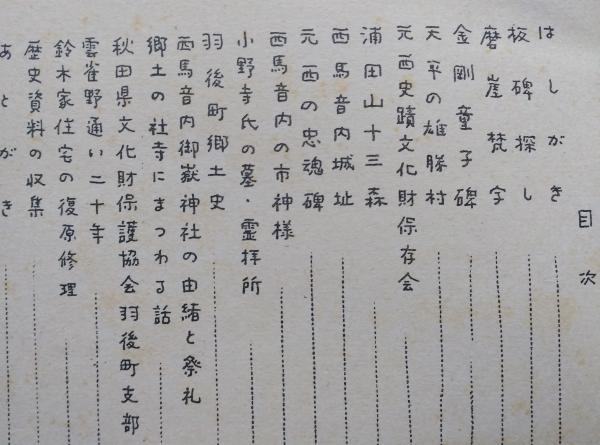 目次
はしがき
板碑探し
磨崖梵字
金剛童子碑
天平の雄勝村
元西史蹟文化財保存会
浦田山十三森
西馬音内城址
元西の忠魂碑
西馬音内の市神様
小野寺氏の墓・霊拝所
羽後町郷土史
西馬音内御嶽神社の由緒と祭礼
郷土の社寺にまつわる話
秋田県文化財保護協会羽後町支部
雲雀野通い二十年
鈴木家住宅の復原修理
歴史資料の収集
あとがき